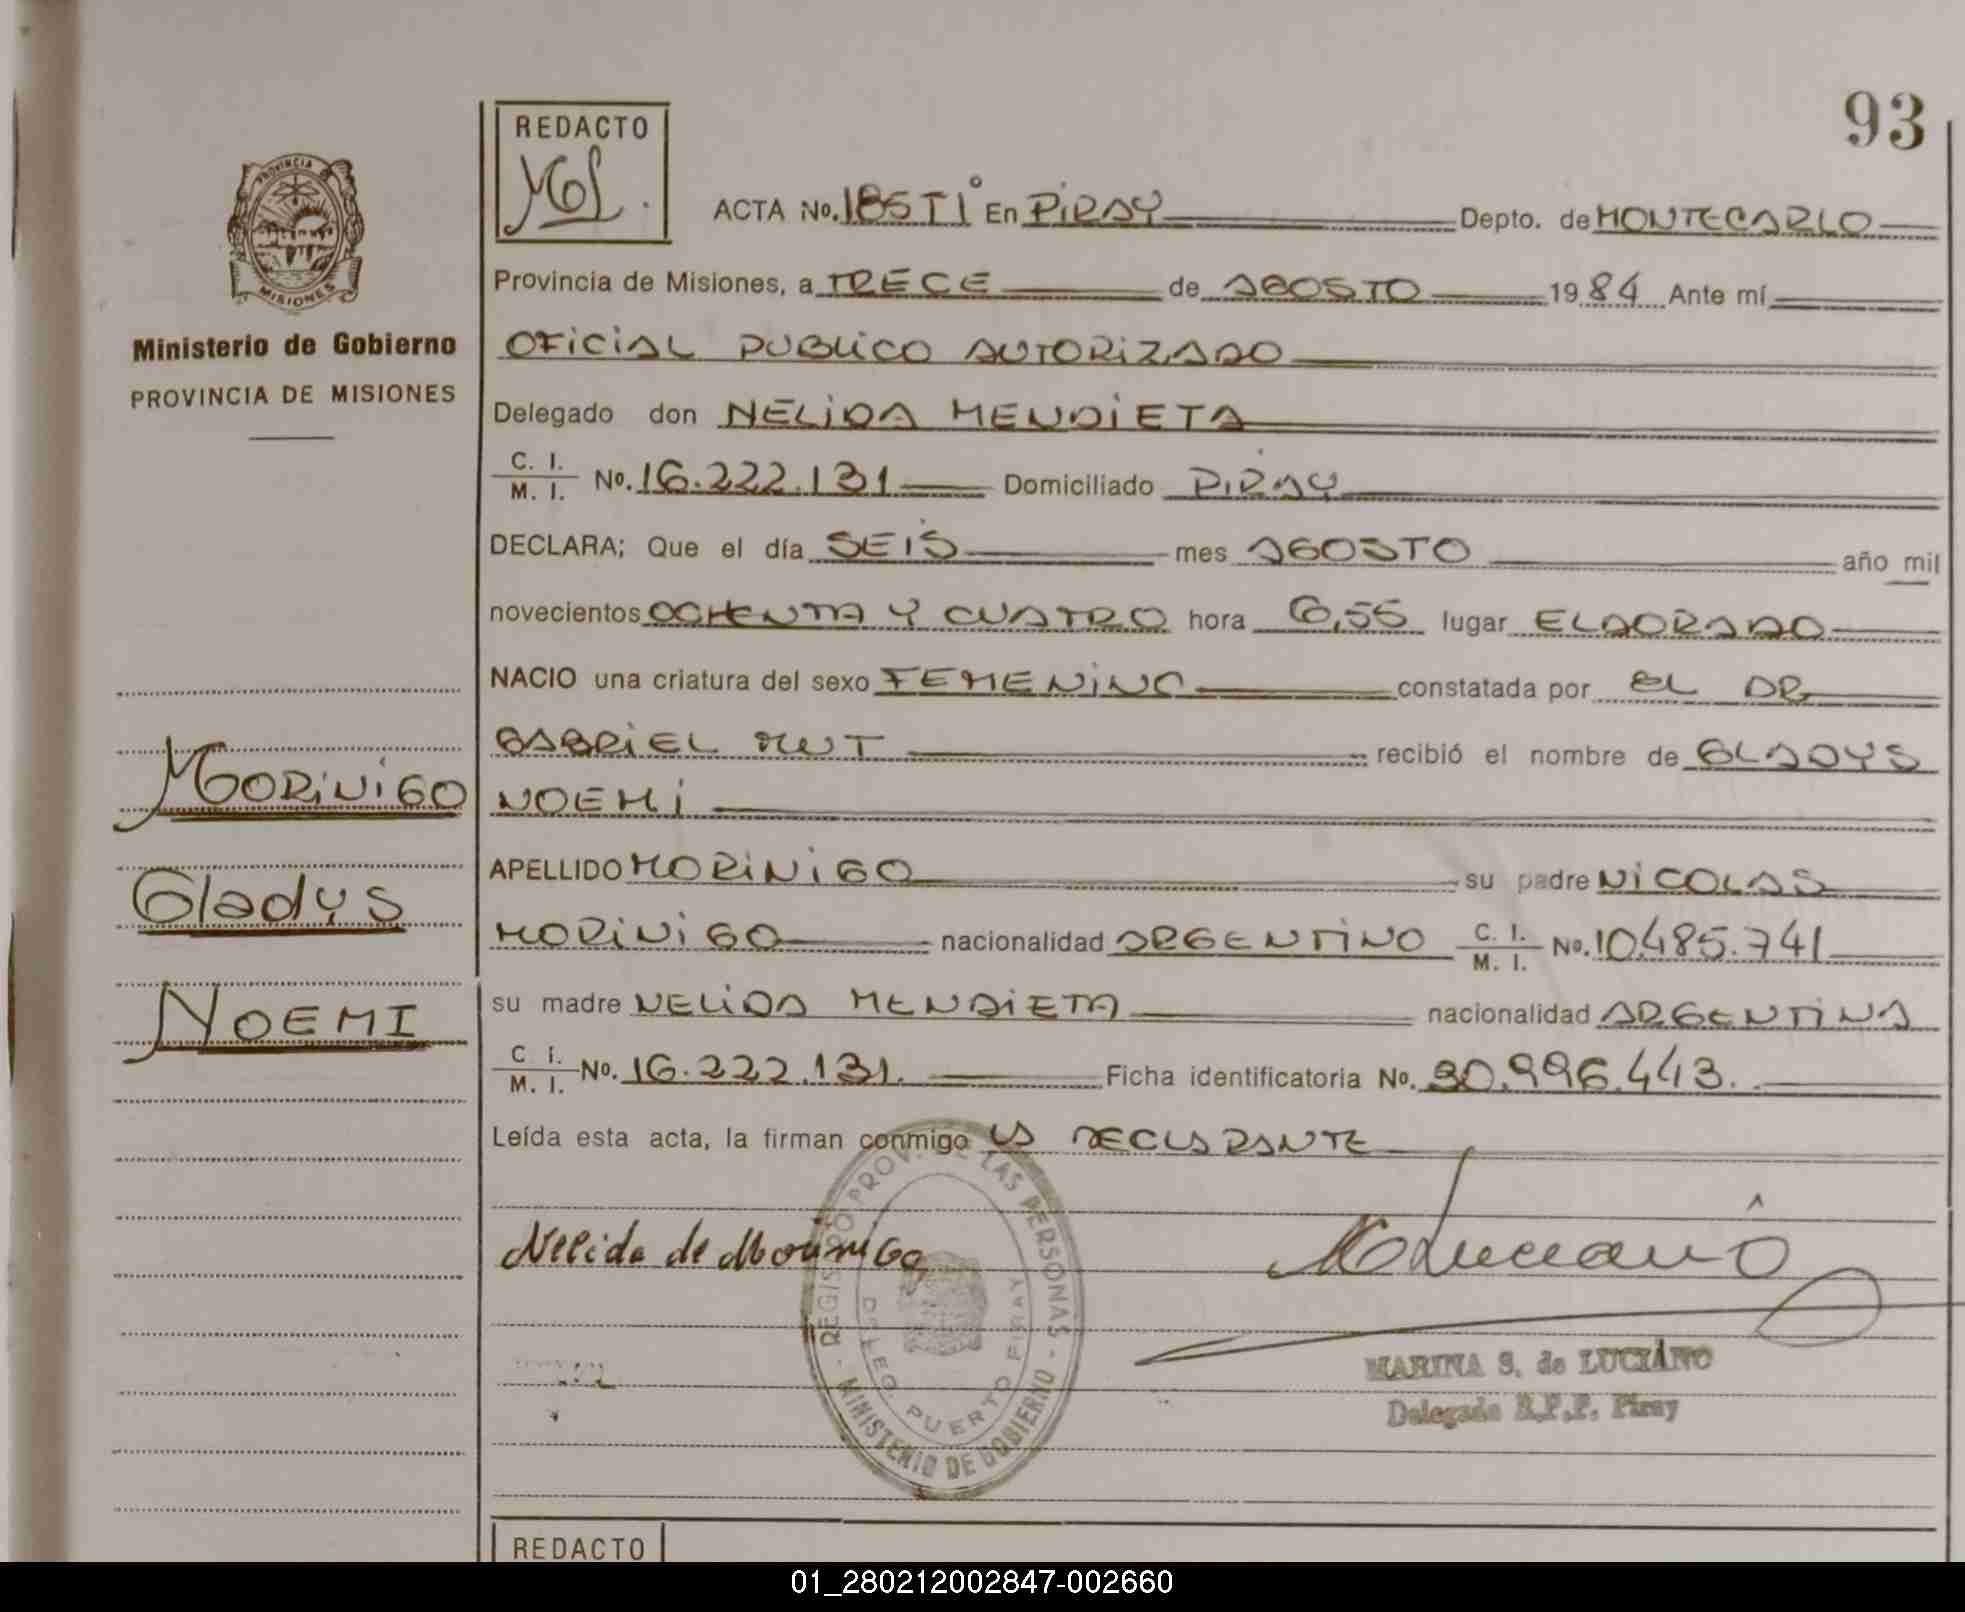 93
REDACTO
PROVINCIA
MISIONES
Ministerio de Gobierno
PROVINCIA DE MISIONES
ACTA No. 185 T1° En PIRAY Depto. de MONTECARLO
Provincia de Misiones, a TRECE de AGOSTO 19 84 Ante mí
OFICIAL PUBLICO AUTORIZADO
Delegado don NELIDA MENDIETA
C. I. / M. I. No. 16.222.131 Domiciliado PIRAY
DECLARA; Que el día SEIS mes AGOSTO año mil
novecientos OCHENTA Y CUATRO hora 6,55 lugar ELDORADO
NACIO una criatura del sexo FEMENINO constatada por EL DR
GABRIEL MUT recibió el nombre de GLADYS
NOEMI
APELLIDO MORINIGO su padre NICOLAS
MORINIGO nacionalidad ARGENTINO C. I. / M. I. No. 10.485.741
su madre NELIDA MENDIETA nacionalidad ARGENTINA
C I. / M. I. No. 16.222.131. Ficha identificatoria No. 30.996.443.
Leída esta acta, la firman conmigo LA DECLARANTE
MORINIGO
Gladys
NOEMI
Nelida de Morinigo
M Luciano
REGISTRO PROV. DE LAS PERSONAS - MINISTERIO DE GOBIERNO -
DELEG. PUERTO PIRAY
MARINA S. de LUCIANO
Delegada R.P.P. Piray
REDACTO
01_280212002847-002660